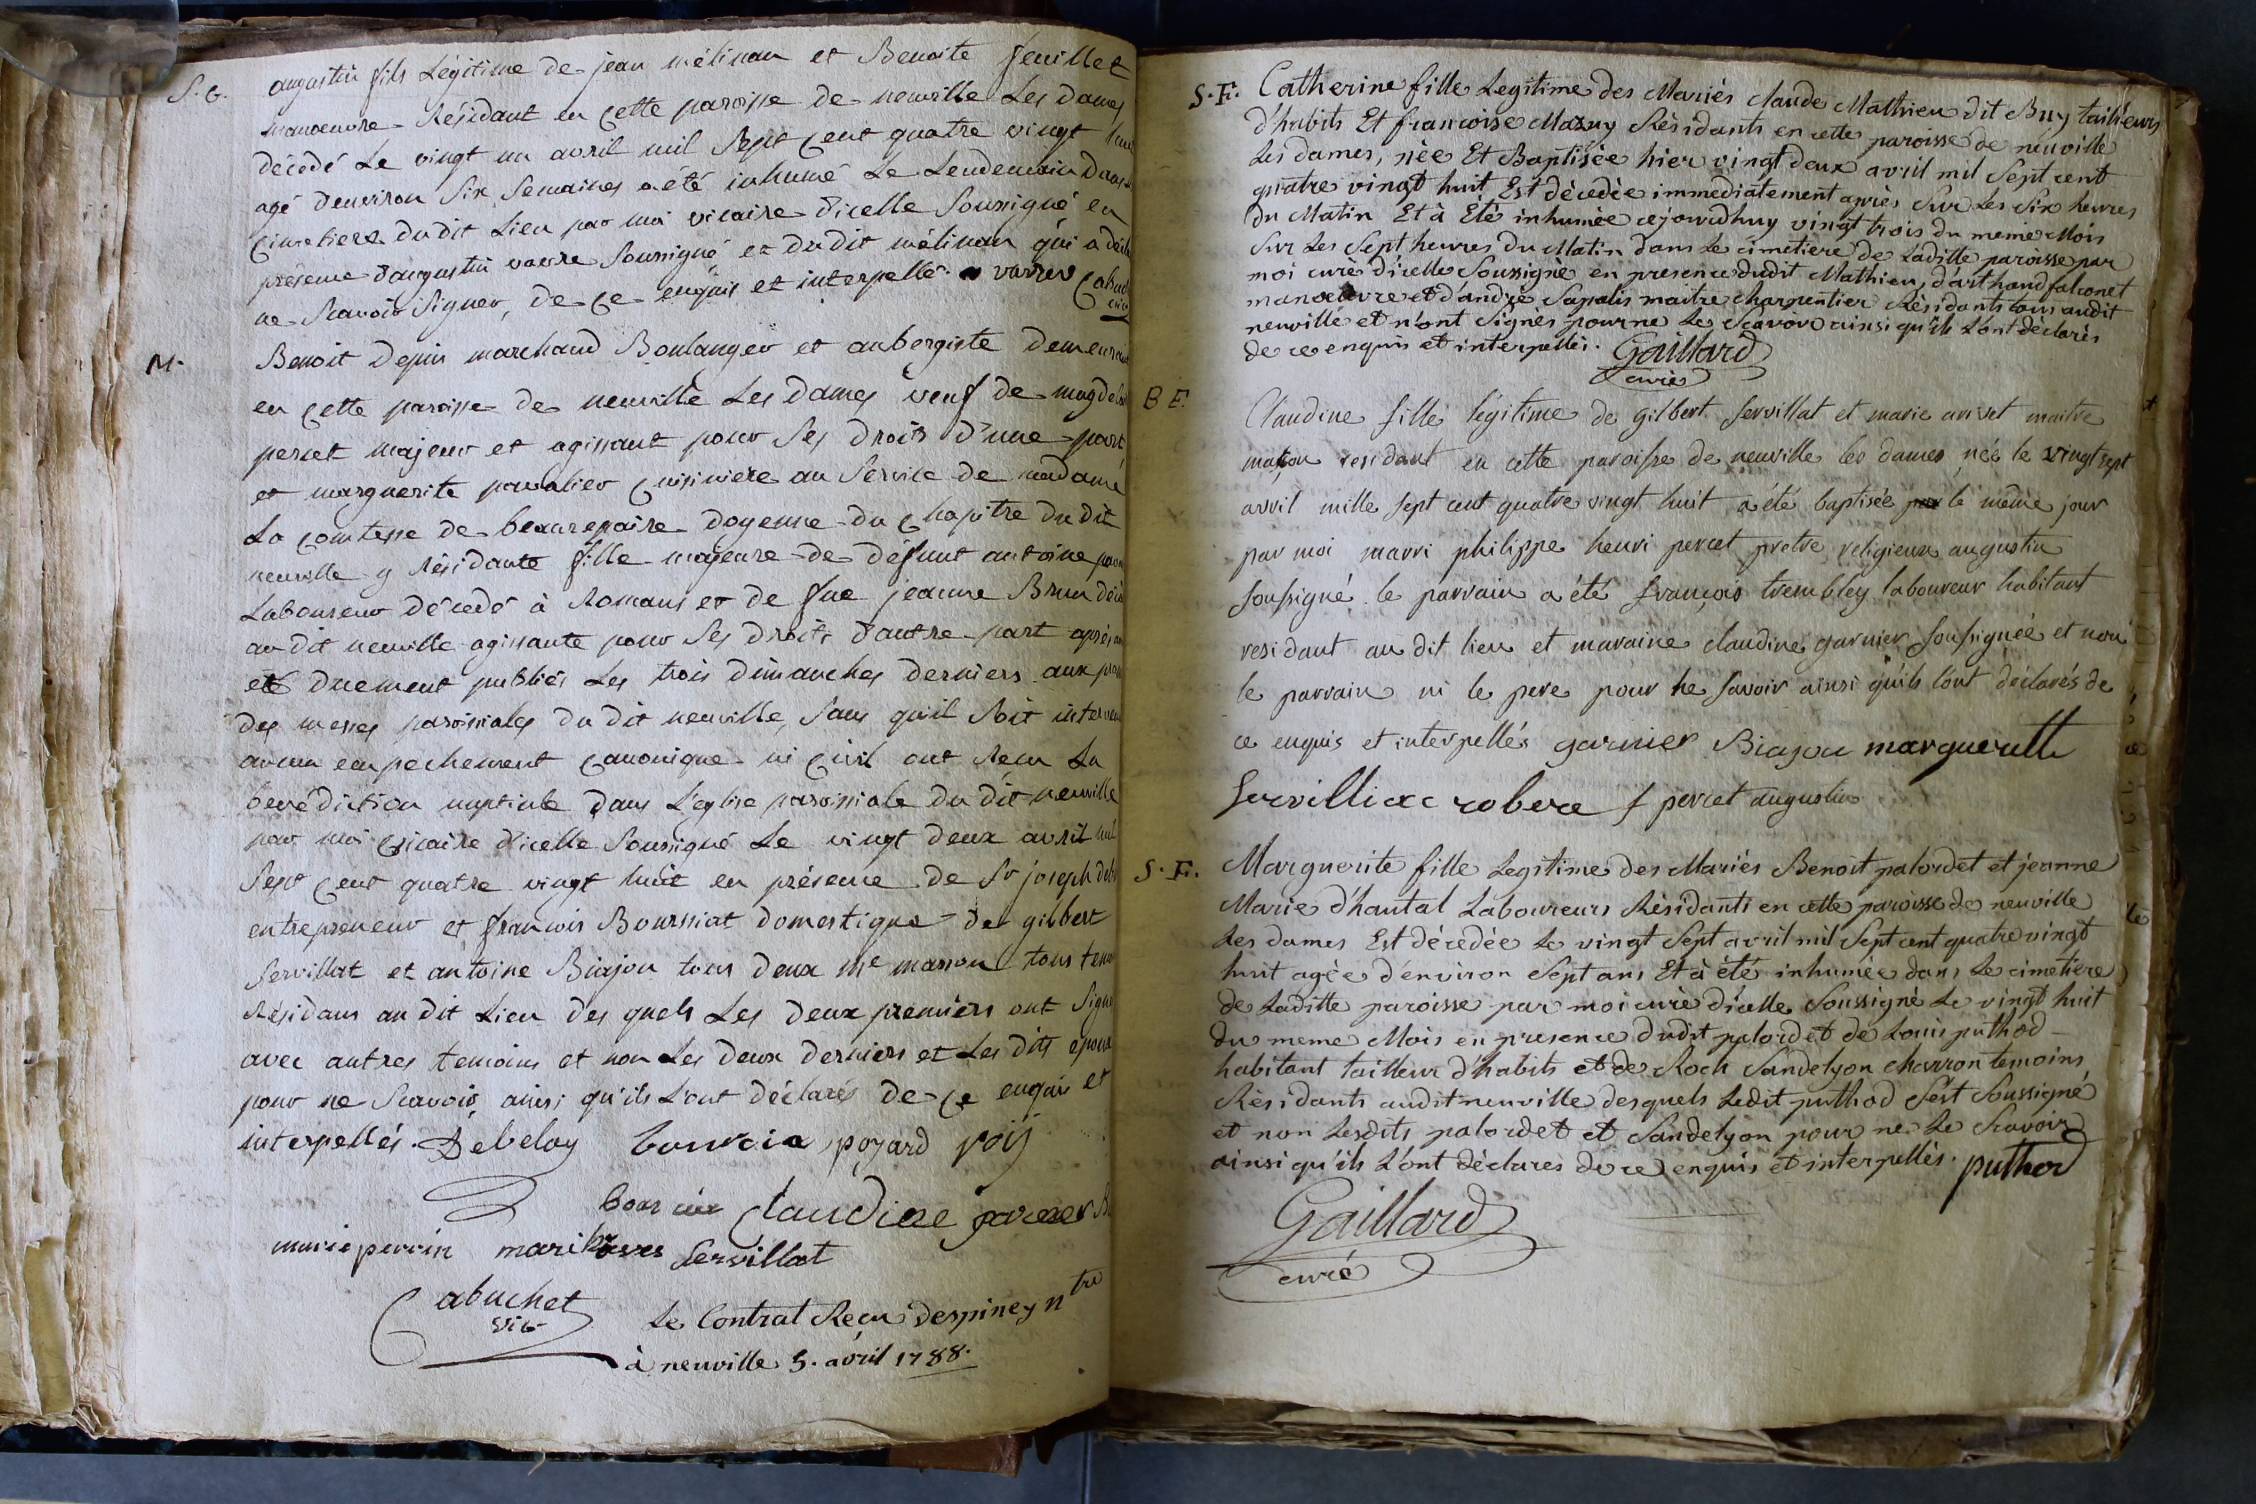 S. G.
augustin fils Légitime de jean mélinan et Benoite feuillet
manoeuvre Résidant en cette paroisse de neuville Les dames
décédé Le vingt un avril mil Sept Cent quatre vingt
agé d'environ Six Semaines a été inhumé Le Lendemain dans
Cimetiere du dit Lieu par moi vicaire d'icelle Soussigné en
présence d'augustin Soussigné et du dit mélinan qui a
ne Scavoir Signer, de Ce enquis et interpellé.
M.
Benoit Depin marchand Boulanger et aubergiste demeurant
en Cette paroisse de neuville Les dames veuf de
percet majeur et agissant pour Ses droits d'une part
et marguerite Cuisiniere au Service de madame
La Comtesse de beaurepaire doyenne du Chapitre du dit
neuville y Résidante fille majeure de défunt antoine
Laboureur décédé à Romans et de fue jeanne Brun
au dit neuville agissante pour Ses droits d'autre part après
été duement publiés Les trois dimanches derniers aux
des messes paroissiales du dit neuville, Sans qu'il Soit
aucun empechement Canonique ni Civil ont Reçu La
benédiction nuptiale dans L'eglise paroissiale du dit neuville
par moi vicaire d'icelle Soussigné Le vingt deux avril mil
Sept Cent quatre vingt huit en présence de Sr joseph
entrepreneur et francois Boursiat domestique de gilbert
Servillat et antoine Biajou tous deux me masson tous
Résidans au dit Lieu des quels Les deux premiers ont Signé
avec autres temoins et non Les deux derniers et Les dits epoux
pour ne Scavoir ainsi qu'ils L'ont déclarés de Ce enquis et
interpellés. Debeloy poyard
Claudine
marie perrin Servillat
Cabuchet
vic
Le Contrat Reçu despiney ntre
à neuville 5. avril 1788.
S. F. Catherine fille Legitime des Mariés Claude Mathieu dit Buy tailleurs
d'habits Et francoise Mazuy Résidants en cette paroisse de neuville
Les dames, née Et Baptisée hier vingt deux avril mil Sept cent
quatre vingt huit Est décedée immediatement après Sur Les Six heures
du Matin Et à Eté inhumée cejourdhuy vingt trois du meme Mois
Sur Les Sept heures du Matin dans Le cimetiere de Laditte paroisse par
moi curé d'icelle Soussigné en presence dudit Mathieu, d'arthaud falconet
manoeuvre et d'andré Sapalis maitre charpentier Résidants tous audit
neuville et n'ont Signés pour ne Le Scavoir ainsi qu'ils L'ont déclarés
de ce enquis et interpellés. Gaillard
curé
B F.
Claudine fille légitime de gilbert servillat et marie arivet maitre
maçon residant en cette paroisse de neuville les dames née le vingt sept
avril mille sept cent quatre vingt huit a été baptisée le même jour
par moi marri philippe henri percet pretre religieux augustin
soussigné. le parrain a été françois trembley laboureur habitant
residant au dit lieu et maraine claudine garnier soussignée et non
le parrain ni le pere pour ne savoir ainsi qu'ils l'ont déclarés de
ce enquis et interpellés garnier Biajou marguerite
f percet augustin
S. F. Marguerite fille Legitime des Mariés Benoit palordet et jeanne
Marie d'hautal Laboureurs Résidants en cette paroisse de neuville
Les dames Est décedée Le vingt Sept avril mil Sept cent quatre vingt
huit agée d'environ Sept ans Et à été inhumée dans Le cimetiere
de Laditte paroisse par moi curé d'icelle Soussigné Le vingt huit
du meme Mois en presence dudit palordet de Louis puthod
habitant tailleur d'habits et de Roch Sandelyon charron temoins
Résidants audit neuville desquels Ledit puthod s'est Soussigné
et non Lesdits palordet et Sandelyon pour ne Le Scavoir
ainsi qu'ils L'ont déclarés de ce enquis et interpellés. puthod
Gaillard
curé